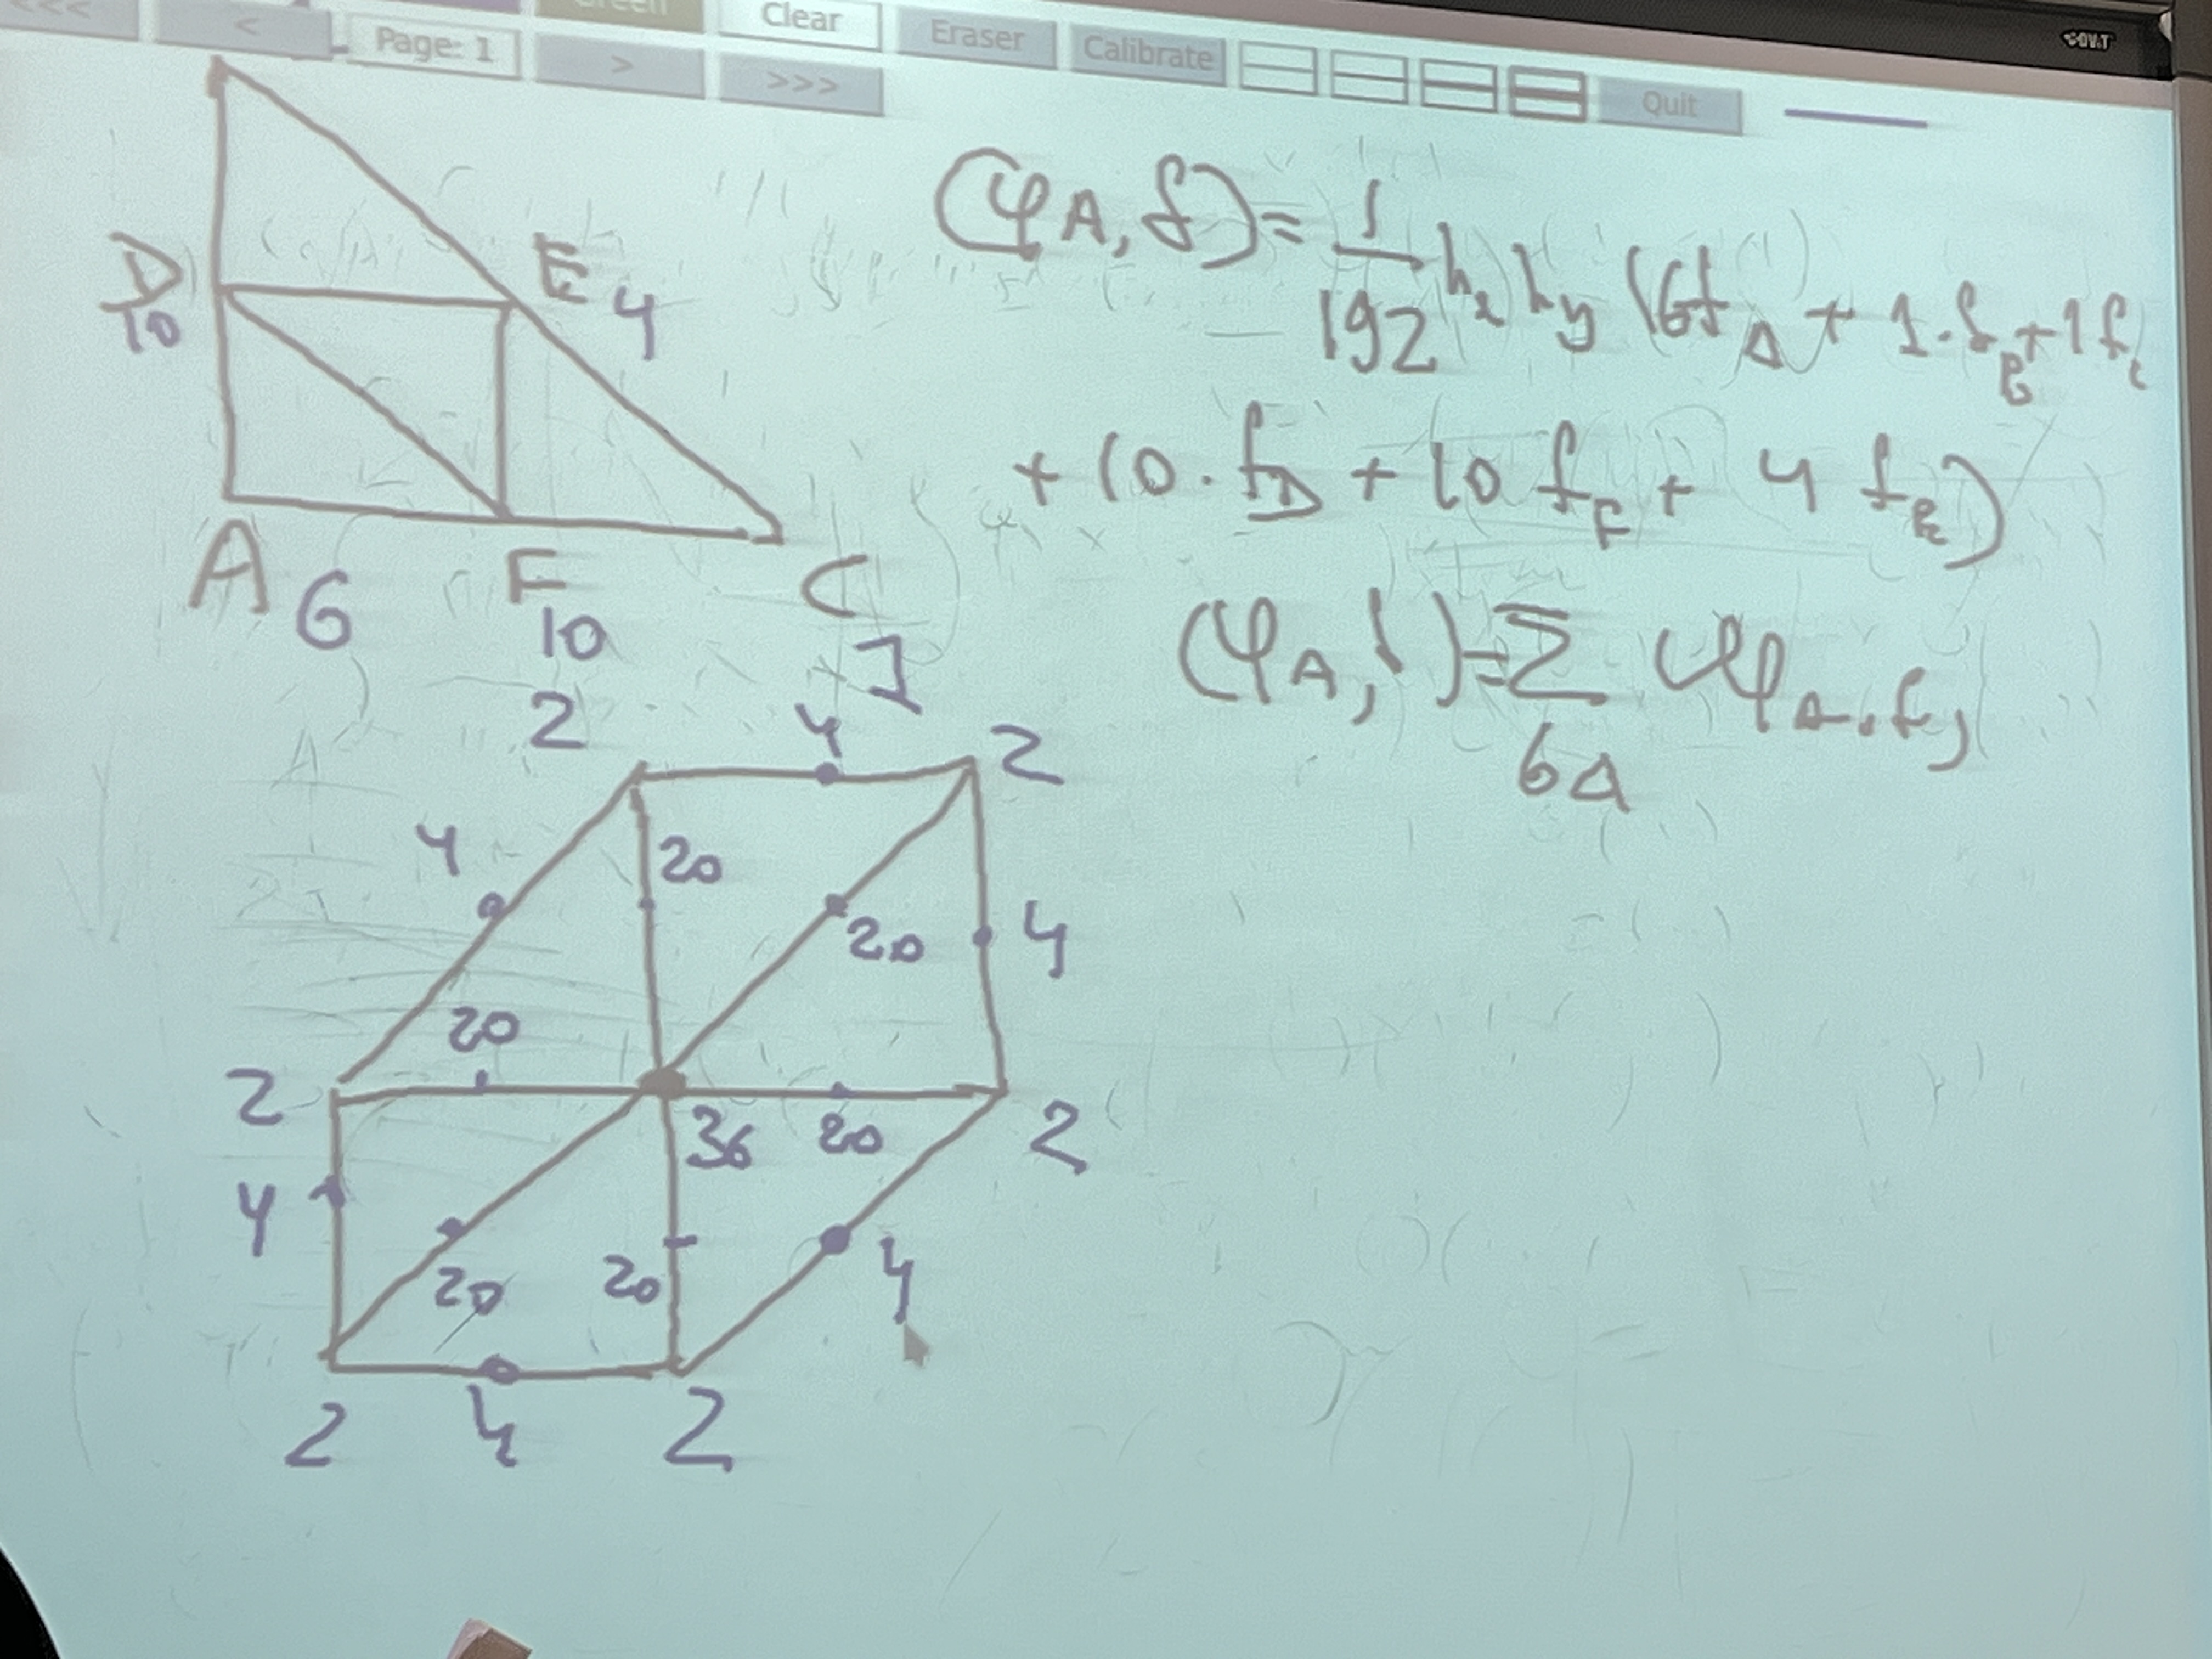 <<<
<
Page: 1
>
>>>
Green
Clear
Eraser
Calibrate
Quit
D
10
E 4
A 6
F
10
C
1
(φA, f) = 1/192 hx hy (6fA + 1·fB + 1fC
+ 10·fD + 10fF + 4fE)
(φA, f) = Σ (φA, f)
6Δ
2 4 2
4 20 20 4
20
2 36 20 2
4 20 20 4
2 4 2